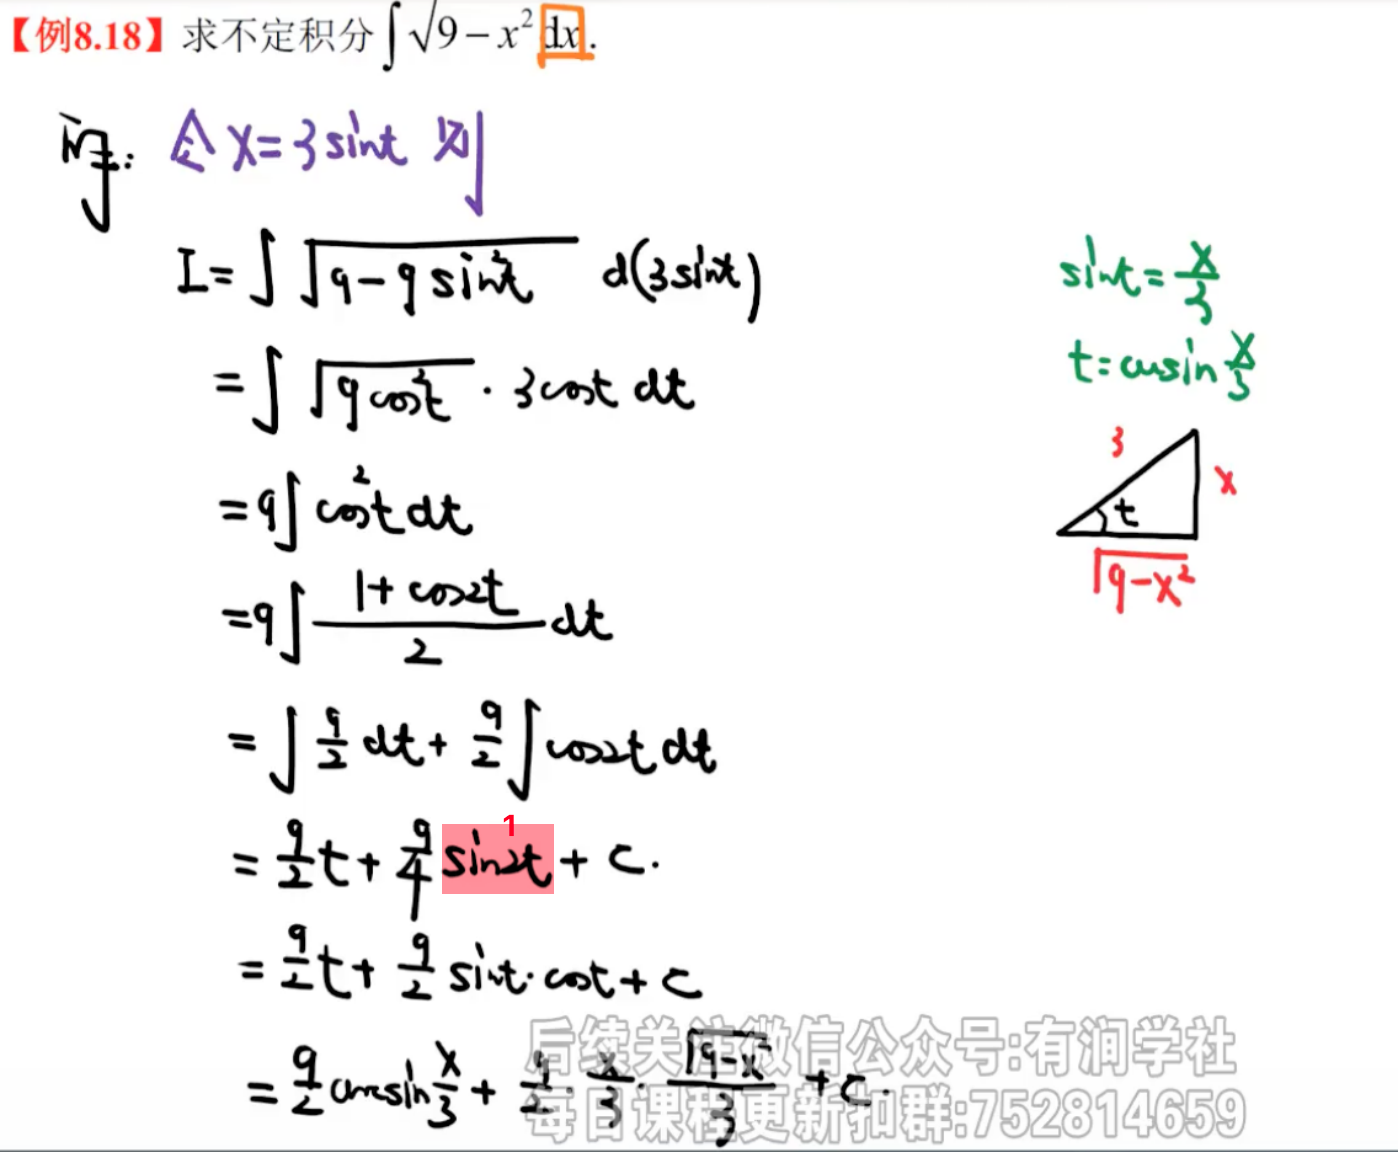 【例8.18】求不定积分∫√9-x² dx.
解: 令 x=3sint 则
I=∫√(9-9sin²t) d(3sint)
=∫√(9cos²t)·3cost dt
=9∫cos²t dt
=9∫(1+cos2t)/2 dt
=∫9/2 dt+9/2∫cos2t dt
1
=9/2 t+9/4 sin2t+C.
=9/2 t+9/2 sint·cost+C
=9/2 arcsin x/3+9/2·x/3·√(9-x²)/3+C.
sint=x/3
t=arcsin x/3
3
x
t
√(9-x²)
后续关注微信公众号:有润学社
每日课程更新扣群:752814659